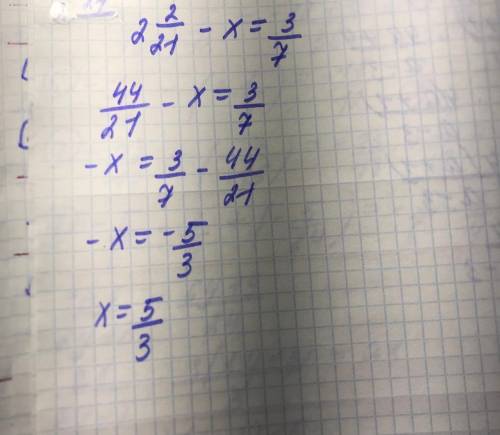 2 2/21 - x = 3/7
44/21 - x = 3/7
- x = 3/7 - 44/21
- x = - 5/3
x = 5/3